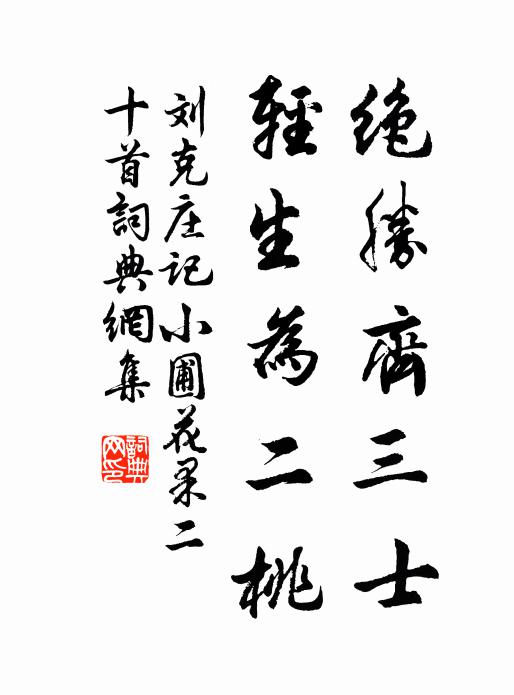 绝勝齊三士
輕生為二桃
刘克庄记小圃花果二
十首詞典網集
詞典
网印